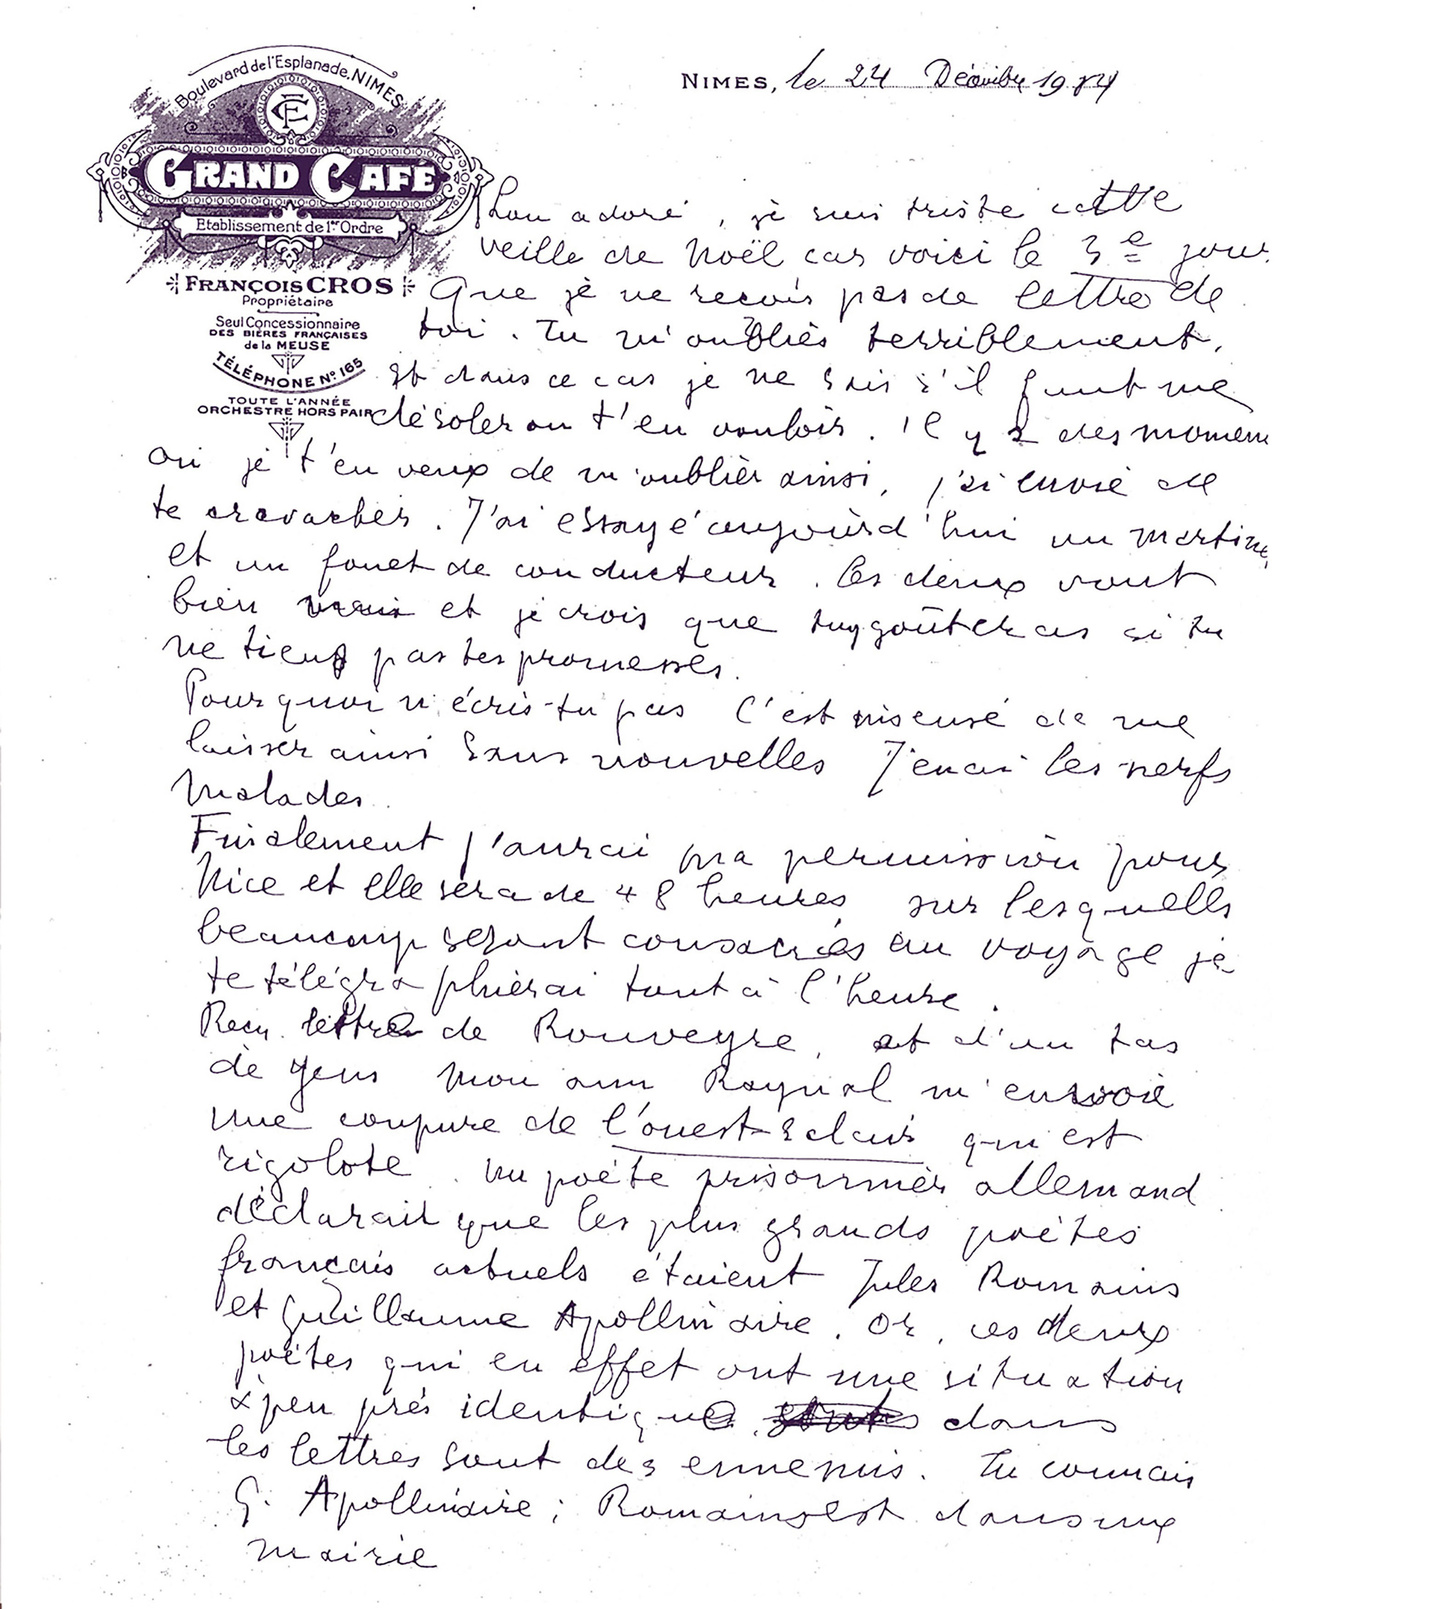 Boulevard de l'Esplanade, NIMES
GRAND CAFÉ
Etablissement de 1er Ordre
FRANÇOIS CROS
Propriétaire
Seul Concessionnaire
DES BIÈRES FRANÇAISES
de la MEUSE
TÉLÉPHONE No 165
TOUTE L'ANNÉE
ORCHESTRE HORS PAIR
NIMES, le 24 Décembre 1914
Lou adoré, je suis triste cette
veille de Noël car voici le 3e jour
Que je ne reçois pas de lettre de
toi. Tu m'oublies terriblement,
Et dans ce cas je ne sais s'il faut me
désoler ou t'en vouloir. Il y a des moments
où je t'en veux de m'oublier ainsi, j'ai envie de
te cravacher. J'ai essayé aujourd'hui un martinet
et un fouet de conducteur. Les deux vont
bien et je crois que tu y goûteras si tu
ne tiens pas tes promesses.
Pourquoi n'écris-tu pas C'est insensé de me
laisser ainsi sans nouvelles J'en ai les nerfs
malades.
Finalement j'aurai ma permission pour
Nice et elle sera de 48 heures, sur lesquelles
beaucoup seront consacrées au voyage je
te télégraphierai tout à l'heure.
Reçu lettre de Rouveyre, et d'un tas
de gens Mon ami Raynal m'envoie
une coupure de l'ouest-Eclair qui est
rigolote. Un poète prisonnier allemand
déclarait que les plus grands poètes
français actuels étaient Jules Romains
et Guillaume Apollinaire. Or, ces deux
poètes qui en effet ont une situation
à peu près identique dans
les lettres sont des ennemis. Tu connais
G. Apollinaire ; Romains est dans une
mairie